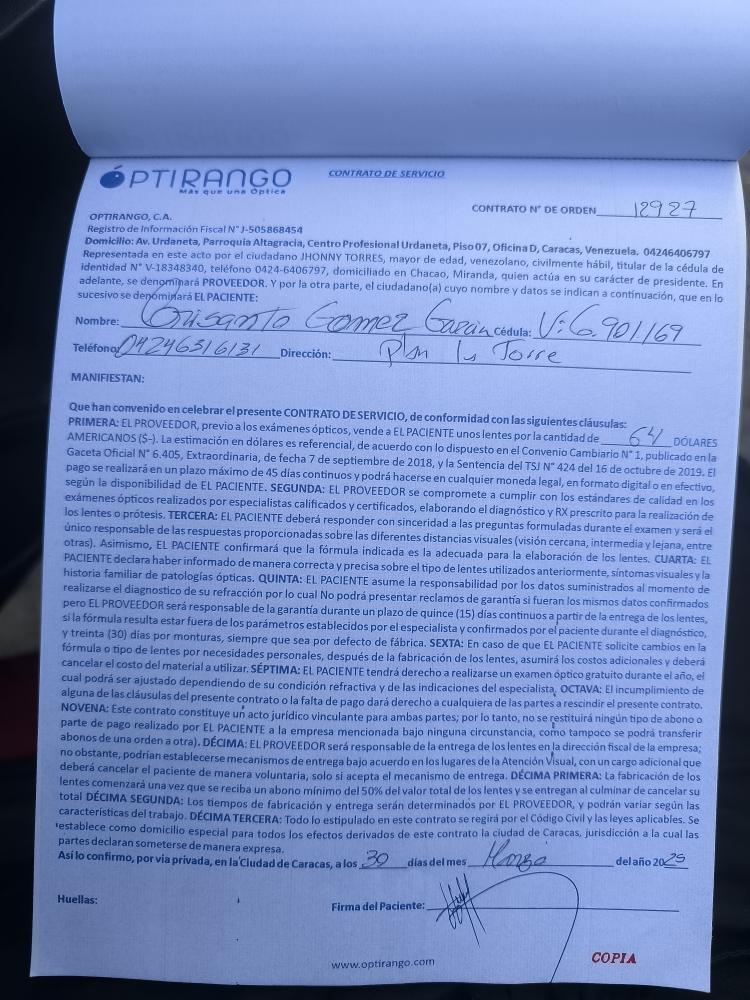 ÓPTIRANGO
Más que una Óptica
CONTRATO DE SERVICIO
CONTRATO N° DE ORDEN 12927
OPTIRANGO, C.A.
Registro de Información Fiscal N° J-505868454
Domicilio: Av. Urdaneta, Parroquia Altagracia, Centro Profesional Urdaneta, Piso 07, Oficina D, Caracas, Venezuela. 04246406797
Representada en este acto por el ciudadano JHONNY TORRES, mayor de edad, venezolano, civilmente hábil, titular de la cédula de
identidad N° V-18348340, teléfono 0424-6406797, domiciliado en Chacao, Miranda, quien actúa en su carácter de presidente. En
adelante, se denominará PROVEEDOR. Y por la otra parte, el ciudadano(a) cuyo nombre y datos se indican a continuación, que en lo
sucesivo se denominará EL PACIENTE:
Nombre: Crisanto Gomez Cédula: V:6.901169
Teléfono: 04246316131 Dirección: la Torre
MANIFIESTAN:
Que han convenido en celebrar el presente CONTRATO DE SERVICIO, de conformidad con las siguientes cláusulas:
PRIMERA: EL PROVEEDOR, previo a los exámenes ópticos, vende a EL PACIENTE unos lentes por la cantidad de 64 DÓLARES
AMERICANOS ($-). La estimación en dólares es referencial, de acuerdo con lo dispuesto en el Convenio Cambiario N° 1, publicado en la
Gaceta Oficial N° 6.405, Extraordinaria, de fecha 7 de septiembre de 2018, y la Sentencia del TSJ N° 424 del 16 de octubre de 2019. El
pago se realizará en un plazo máximo de 45 días continuos y podrá hacerse en cualquier moneda legal, en formato digital o en efectivo,
según la disponibilidad de EL PACIENTE. SEGUNDA: EL PROVEEDOR se compromete a cumplir con los estándares de calidad en los
exámenes ópticos realizados por especialistas calificados y certificados, elaborando el diagnóstico y RX prescrito para la realización de
los lentes o prótesis. TERCERA: EL PACIENTE deberá responder con sinceridad a las preguntas formuladas durante el examen y será el
único responsable de las respuestas proporcionadas sobre las diferentes distancias visuales (visión cercana, intermedia y lejana, entre
otras). Asimismo, EL PACIENTE confirmará que la fórmula indicada es la adecuada para la elaboración de los lentes. CUARTA: EL
PACIENTE declara haber informado de manera correcta y precisa sobre el tipo de lentes utilizados anteriormente, síntomas visuales y la
historia familiar de patologías ópticas. QUINTA: EL PACIENTE asume la responsabilidad por los datos suministrados al momento de
realizarse el diagnostico de su refracción por lo cual No podrá presentar reclamos de garantía si fueran los mismos datos confirmados
pero EL PROVEEDOR será responsable de la garantía durante un plazo de quince (15) días continuos a partir de la entrega de los lentes,
si la fórmula resulta estar fuera de los parámetros establecidos por el especialista y confirmados por el paciente durante el diagnóstico,
y treinta (30) días por monturas, siempre que sea por defecto de fábrica. SEXTA: En caso de que EL PACIENTE solicite cambios en la
fórmula o tipo de lentes por necesidades personales, después de la fabricación de los lentes, asumirá los costos adicionales y deberá
cancelar el costo del material a utilizar. SÉPTIMA: EL PACIENTE tendrá derecho a realizarse un examen óptico gratuito durante el año, el
cual podrá ser ajustado dependiendo de su condición refractiva y de las indicaciones del especialista. OCTAVA: El incumplimiento de
alguna de las cláusulas del presente contrato o la falta de pago dará derecho a cualquiera de las partes a rescindir el presente contrato.
NOVENA: Este contrato constituye un acto jurídico vinculante para ambas partes; por lo tanto, no se restituirá ningún tipo de abono o
parte de pago realizado por EL PACIENTE a la empresa mencionado bajo ninguna circunstancia, como tampoco se podrá transferir
abonos de una orden a otra). DÉCIMA: EL PROVEEDOR será responsable de la entrega de los lentes en la dirección fiscal de la empresa;
no obstante, podrían establecerse mecanismos de entrega bajo acuerdo en los lugares de la Atención Visual, con un cargo adicional que
deberá cancelar el paciente de manera voluntaria, solo si acepta el mecanismo de entrega. DÉCIMA PRIMERA: La fabricación de los
lentes comenzará una vez que se reciba un abono mínimo del 50% del valor total de los lentes y se entregan al culminar de cancelar su
total DÉCIMA SEGUNDA: Los tiempos de fabricación y entrega serán determinados por EL PROVEEDOR, y podrán variar según las
características del trabajo. DÉCIMA TERCERA: Todo lo estipulado en este contrato se regirá por el Código Civil y las leyes aplicables. Se
establece como domicilio especial para todos los efectos derivados de este contrato la ciudad de Caracas, jurisdicción a la cual las
partes declaran someterse de manera expresa.
Así lo confirmo, por via privada, en la Ciudad de Caracas, a los 30 días del mes Marzo del año 2025
Huellas:
Firma del Paciente:
www.optirango.com
COPIA